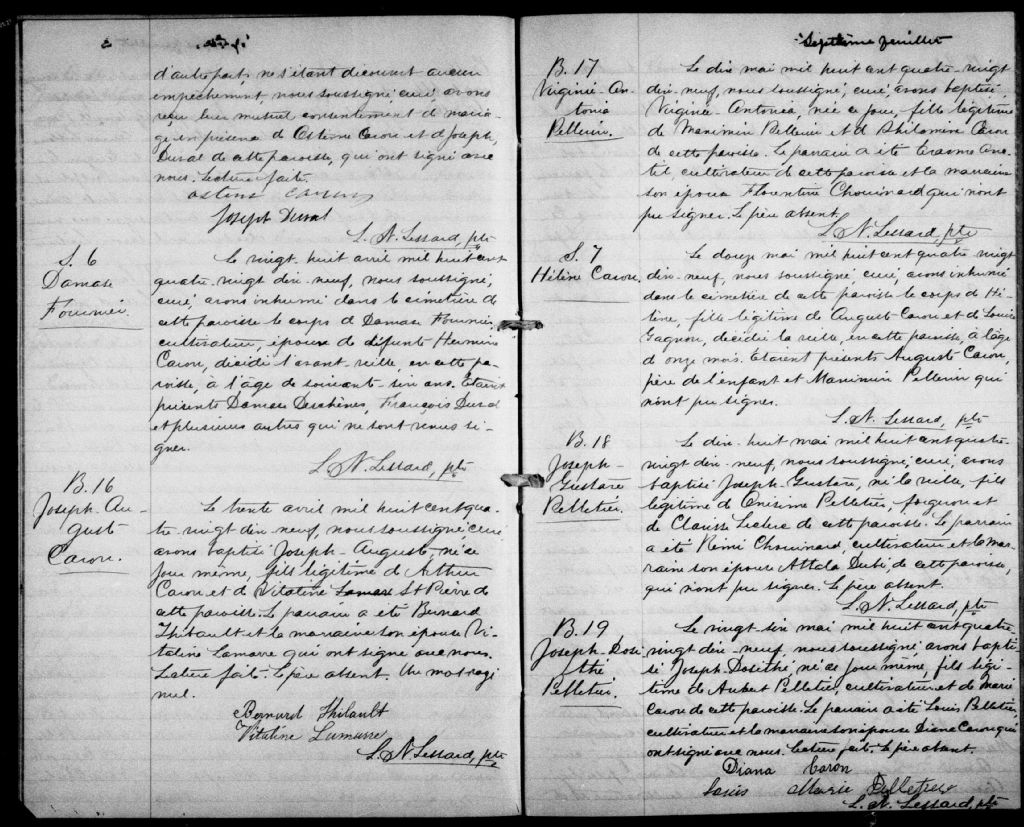 d'autre part; ne s'étant découvert aucun
empêchement, nous soussigné, curé, avons
reçu leur mutuel consentement de maria-
ge en présence de Ostene Caron et d Joseph
Duval de cette paroisse, qui ont signé avec
nous. Lecture faite.
ostene caron
Joseph Duval
L. N. Lessard, ptr
S. 6
Damase
Fournier.
Le vingt-huit avril mil huit cent
quatre-vingt dix-neuf, nous soussigné,
curé avons inhumé dans le cimetière de
cette paroisse le corps d Damase Fournier,
cultivateur, époux de défunte Hermine
Caron, décédé l'avant-veille, en cette pa-
roisse, à l'âge de soixante-six ans. Etaient
présents Damase Deschênes, François Duval
et plusieurs autres qui ne sont venus si-
gner.
L. N. Lessard, ptr
B. 16
Joseph-Au-
guste
Caron.
Le trente avril mil huit cent qua-
tre-vingt dix-neuf, nous soussigné curé
avons baptisé Joseph-Auguste, né ce
jour même, fils légitime d Arthur
Caron et de Vitaline Lamarre St Pierre de
cette paroisse. Le parrain a été Bernard
Thibault et la marraine son épouse Vi-
taline Lamarre qui ont signé avec nous.
Lecture faite. Le père absent. Un mot rayé
nul.
Bernard Thibault
Vitaline Lamarre
L. N. Lessard, ptr
Septième feuillet
B. 17
Virginie-An-
tonia
Pellerin.
Le dix mai mil huit cent quatre-vingt
dix-neuf, nous soussigné, curé, avons baptisé
Virginie-Antonia, née ce jour, fille légitime
de Maximin Pellerin et d Philomène Caron
de cette paroisse. Le parrain a été Erasme
cultivateur de cette paroisse et la marraine
son épouse Florentine Chouinard qui n'ont
pu signer. Le père absent.
L. N. Lessard, ptr
S. 7
Hélène Caron.
Le douze mai mil huit cent quatre-vingt
dix-neuf, nous soussigné, curé, avons inhumé
dans le cimetière de cette paroisse le corps de Hé-
lène, fille légitime de Auguste Caron et de Louise
Gagnon, décédée la veille, en cette paroisse, à l'âge
d'onze mois. Etaient présents Auguste Caron,
père de l'enfant et Maximin Pellerin qui
n'ont pu signer.
L. N. Lessard, ptr
B. 18
Joseph-
Gustave
Pelletier.
Le dix-huit mai mil huit cent quatre-
vingt dix-neuf, nous soussigné, curé, avons
baptisé Joseph-Gustave, né la veille, fils
légitime d Onésime Pelletier, forgeron et
de Clarisse Leclerc de cette paroisse. Le parrain
a été Rémi Chouinard, cultivateur et la mar-
raine son épouse Attala Dubé, de cette paroisse,
qui n'ont pu signer. Le père absent.
L. N. Lessard, ptr
B. 19
Joseph-Dosi-
thé
Pelletier.
Le vingt-six mai mil huit cent quatre
vingt dix-neuf, nous soussigné, avons bapti-
sé Joseph Dosithé né ce jour même, fils légi-
time de Aubert Pelletier, cultivateur et de Marie
Caron de cette paroisse. Le parrain a été Louis Pelletier,
cultivateur et la marraine son épouse Diana Caron qui
ont signé avec nous. Lecture faite. Le père absent.
Diana Caron
Louis Marie Pelletier
L. N. Lessard, ptr